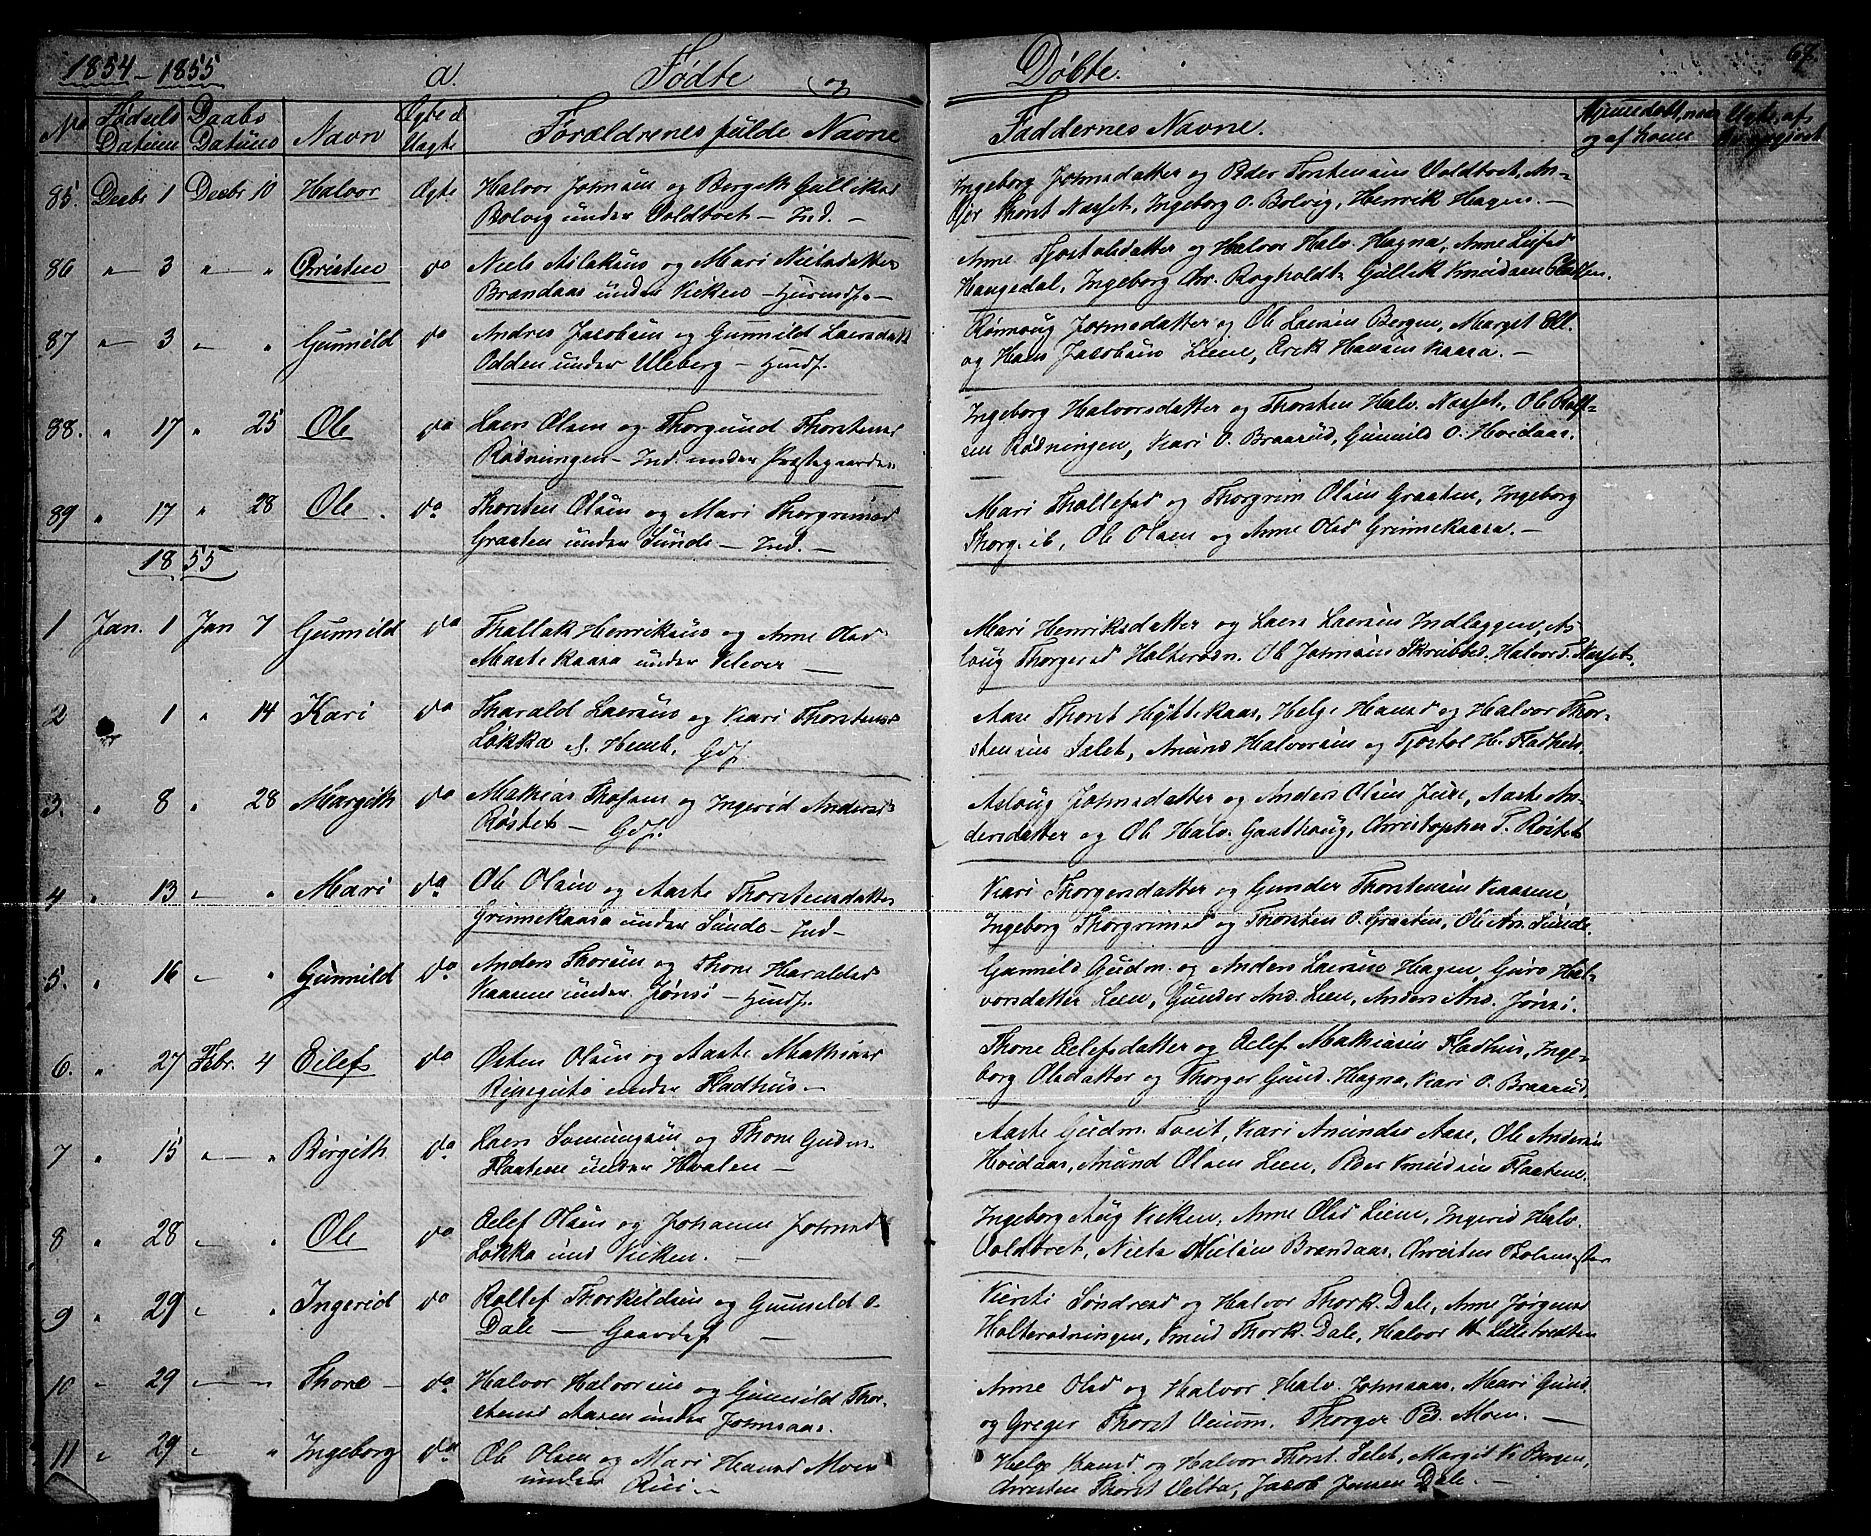 1854 - 1855 a. Fødte og Døbte. 67.
No Fødsels Datum Daabs Datum Navn Ægte el. Uægte Forældrenes fulde Navne Faddernes Navne.
85. Decbr 1 Decbr 10 Halvor Ægte Halvor Johnsen og Bergith Gulliksd
Bolvig under Voldtvet - Ind. -
Ingeborg Johnsdatter og Peder Torstensen Voldtvet, An-
Thorst Næsset, Ingeborg O. Bolvig, Henrik Hagen. -
86 " 3 " " Christen do Niels Aslaksen og Mari Nielsdatter
Brændaas under Vieken - Huusmf. -
Anne Tjostolsdatter og Halvor Halv. Hagna, Anne Leifsd
Haugedal, Ingeborg Chr. Rogholdt, Gullik Knudsen
87 " 3 " " Gunnild do Andres Jacobsen og Gunnild Laersdatt
Odden under Uleberg - Husmf.
Rønnoug Johnsdatter og Ole Laersen Bergen, Marget Ell.
og Hans Jacobsen Leine, Erik Hansen Kaasa. -
88. " 17 " 25 Ole do Laers Olsen og Thorgund Thorstensd
Rødningen - Ind. under Præstegaarden
Ingeborg Halvorsdatter og Thorsten Halv. Næsset, Ole Rolf-
sen Rødningen, Kari O. Braarud, Gunnild O. Hoidaas.
89 " 17 " 28 Ole do Thorsten Olsen og Mari Thorgrimsd
Graaten under Sunde - Ind. -
Mari Thallefsd og Thorgrim Olsen Graaten, Ingeborg
Thorg. ib, Ole Olsen og Anne Olsd Grinnekaasa. -
1855
1 Jan. 1 Jan 7 Gunnild do Thallak Henriksen og Anne Olsd
Mastekaasa under Klever -
Mari Henriksdatter og Laers Laersen Indlæggen, As-
loug Thorgersd Halterødn. Ole Johnsen Skrubbed. Halvor T. Næsset.
2 " 1 " 14 Kari do Tharald Laersen og Kari Thorstensd
Løkka u. Hemb. Gdf.
Aase Thorst Hyttekaas, Helge Hansd og Halvor Thor-
stensen Selet, Anund Halvorsen og Tjostol H. Fladhus.
3. " 8 " 28 Margith do Mathias Thofsen og Ingerid Andersd.
Røstet - Gdf.
Asloug Johnsdatter og Anders Olsen Juve, Aaste An-
dersdatter og Ole Halv. Gaathoug, Christopher T. Røstet
4 " 13 " " Mari do Ole Olsen og Aaste Thorstensdatter
Grinnekaasa under Sunde - Ind -
Kari Thorgersdatter og Gunder Thorstensen Kaasene
Ingeborg Thorgrimsd og Thorsten O. Graaten, Ole An. Sunde.
5. " 16 " " Gunnild do Anders Thorsen og Thone Haraldsd
Kaasene under Jønsi - Husmf.
Gunnild Gudm. og Anders Laersen Hagen, Guro Hal-
vorsdatter Leen, Gunder And. Leen, Anders And. Jønsi.
6. " 27 Febr. 4 Eilefs do Østen Olsen og Aaste Mathiasd
under Fladhus -
Thone Eelefsdatter og Eelef Mathiasen Fladhus, Inge-
borg Olsdatter og Thorger Gund. Hagna, Kari O. Braarud,
7 " 15 " " Birgith do Laers Sveinungsen og Thone Gudm.
Flaatene under Hvalen -
Aaste Gudm. Tveit, Kari Anunds Aase, Ole Andersen
Hoidaas, Anund Olsen Leen, Peder Knudsen Flaatene.
8 " 28 " " Ole do Eelef Olsen og Johanne Johnsd
Løkka und Vieken. -
Ingeborg Aug Vieken, Anne Olsd Leene, Ingerid Halv.
Voldtvet, Niels Nielsen Brændaas, Christen
9 " 29 " " Ingerid do Rollef Thorkildsen og Gunnild O.
Dale - Gaardsf. -
Kiersti Søndresd og Halvor Thork. Dale, Anne Jørgensd
Halterødningen, Knud Thork. Dale, Halvor
10 " 29 " " Thore do Halvor Halvorsen og Gunnild Thor-
stensd Aasen under Johnsaas.
Anne Olsd og Halvor Halv. Johnsaas, Mari Gund.
og Greger Thorst Veum. Thorger Moen. -
11 " 29 " " Ingeborg do Ole Olsen og Mari Hansd Moen
under Riis. -
Helge Hansd og Halvor Thorst. Selet, Margit K. Bergen,
Christen Thorst Velta, Jacob Jensen Dale. -